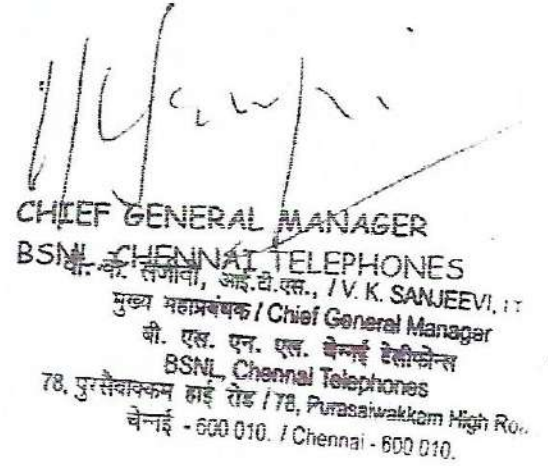 CHIEF GENERAL MANAGER
BSNL CHENNAI TELEPHONES
वी. के. संजीवी, आई.टी.एस., / V. K. SANJEEVI,
मुख्य महाप्रबंधक / Chief General Manager
बी. एस. एन. एल. चेन्नई टेलीफोन्स
BSNL, Chennai Telephones
78, पुरसैवाक्कम हाई रोड / 78, Purasaiwakkam High
चेन्नई - 600 010. / Chennai - 600 010.